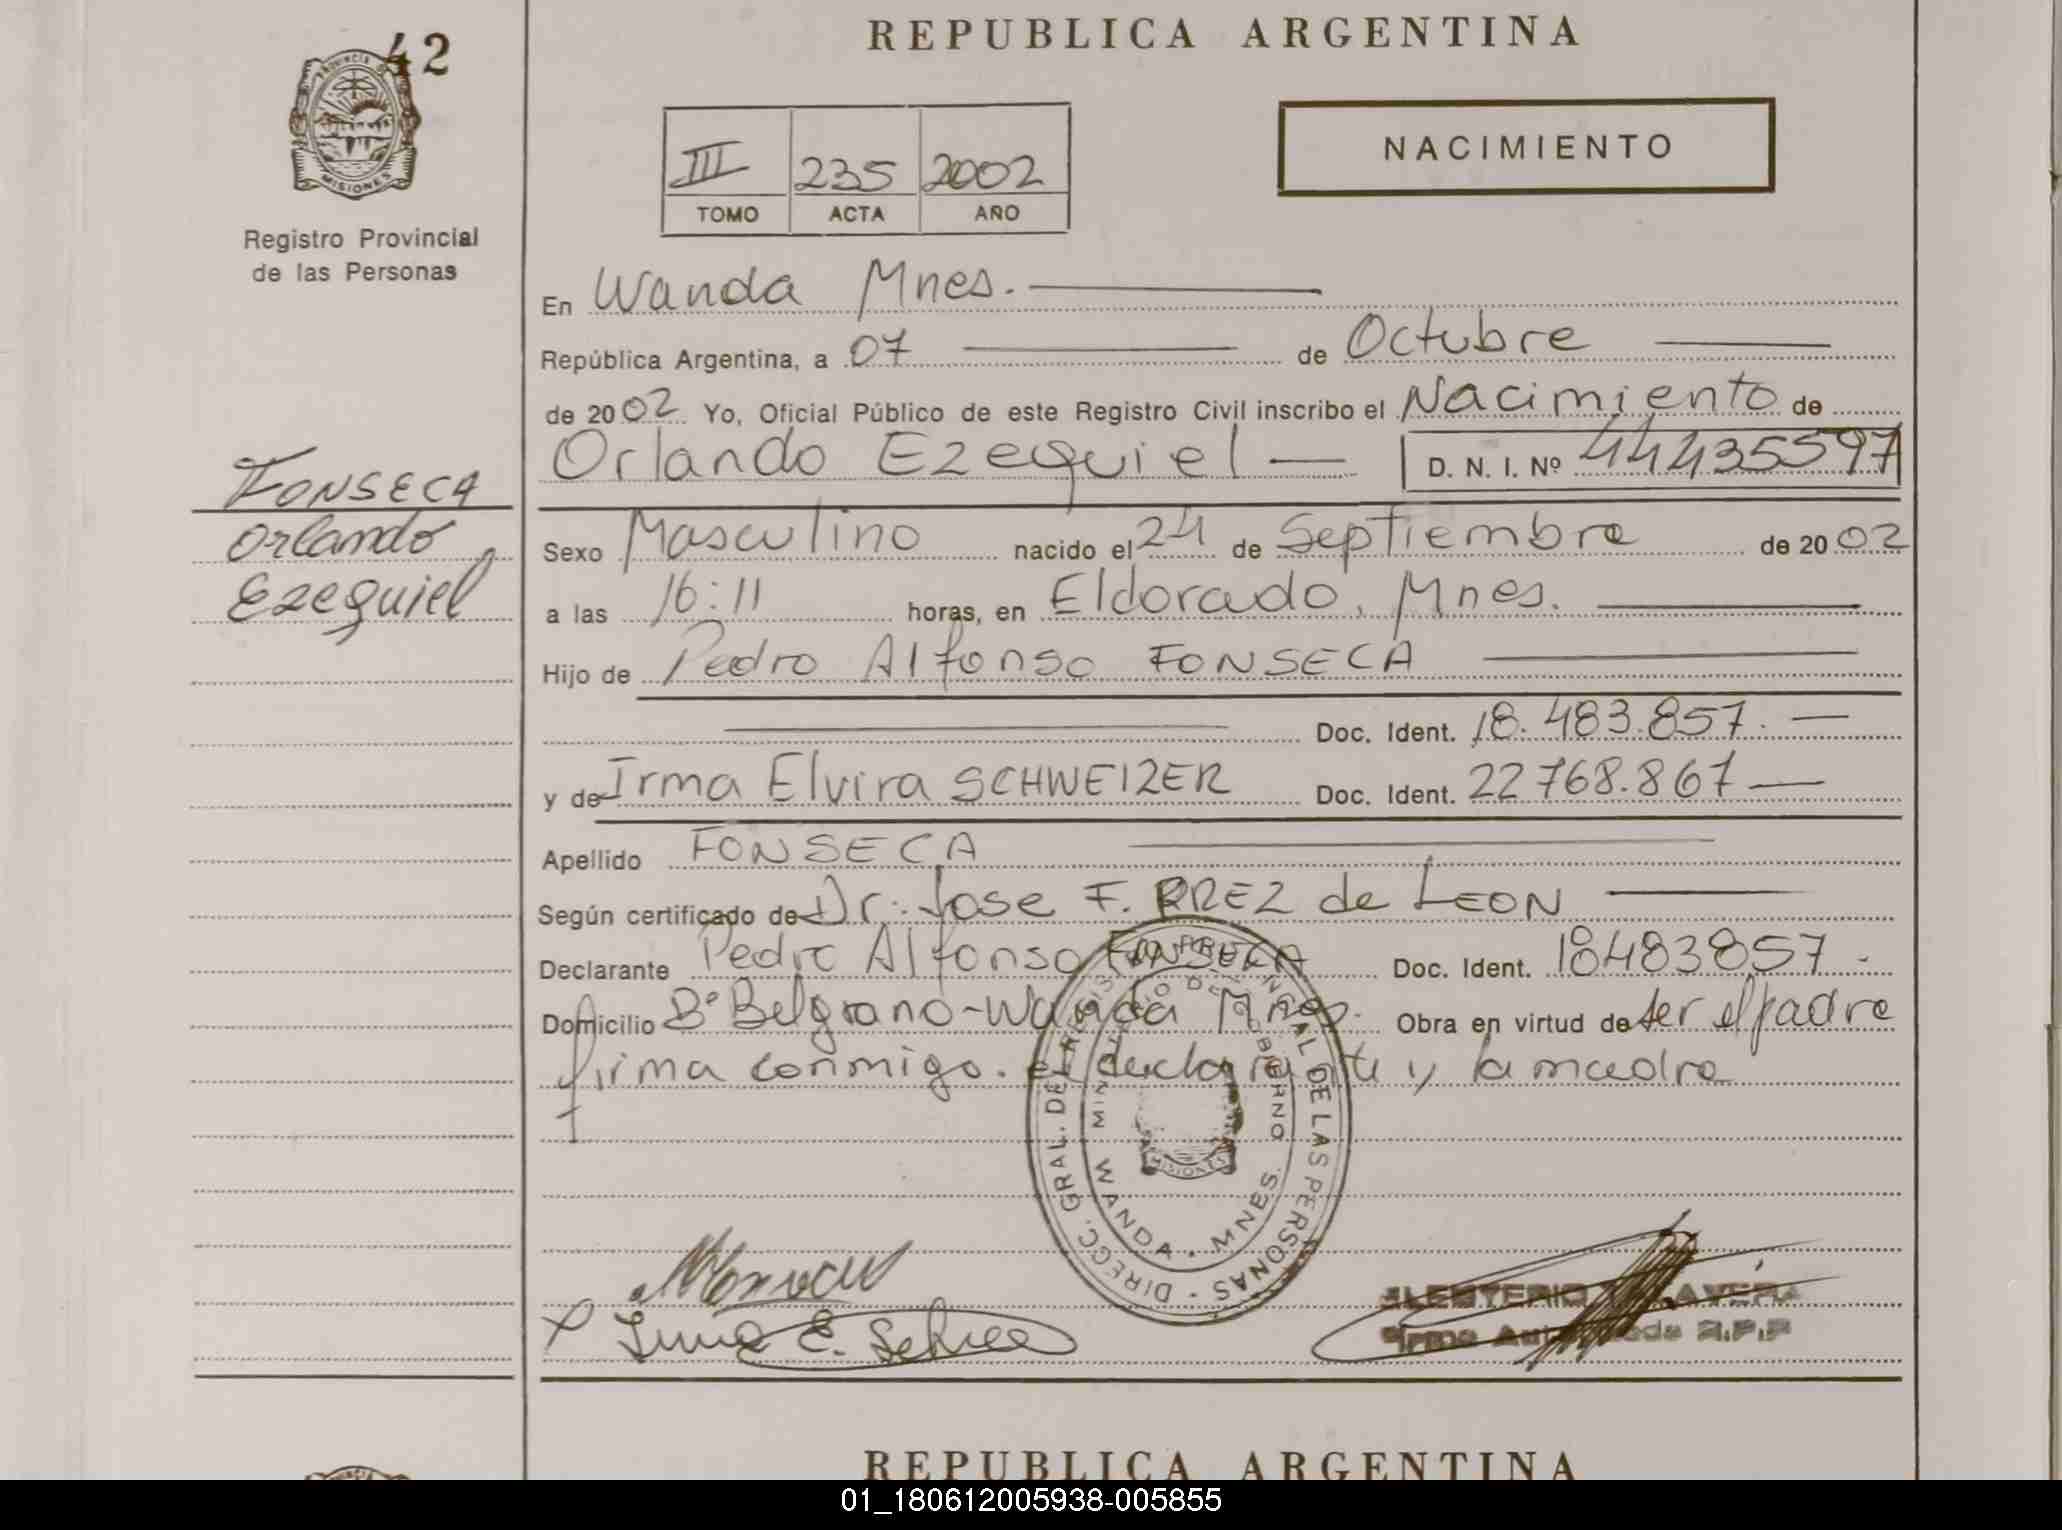 42
REPUBLICA ARGENTINA
PROVINCIA DE
MISIONES
Registro Provincial
de las Personas
III 235 2002
TOMO ACTA AÑO
NACIMIENTO
En Wanda Mnes.
República Argentina, a 07 de Octubre
de 2002 Yo, Oficial Público de este Registro Civil inscribo el Nacimiento de
Orlando Ezequiel D. N. I. Nº 44435597
FONSECA
Orlando
Ezequiel
Sexo Masculino nacido el 24 de Septiembre de 2002
a las 16:11 horas, en Eldorado, Mnes.
Hijo de Pedro Alfonso FONSECA
Doc. Ident. 18.483.857.
y de Irma Elvira SCHWEIZER Doc. Ident. 22768.867
Apellido FONSECA
Según certificado de Dr. Jose F. de LEON
Declarante Pedro Alfonso FONSECA Doc. Ident. 18483857.
Domicilio Bº Belgrano-Wanda Mnes. Obra en virtud de ser el padre
firma conmigo. el declarante y la madre
DIRECC. GRAL. DE REGISTRO PROVINCIAL DE LAS PERSONAS
MINISTERIO DE GOBIERNO
MISIONES
WANDA - MNES.
Irma E.
REPUBLICA ARGENTINA
01_180612005938-005855